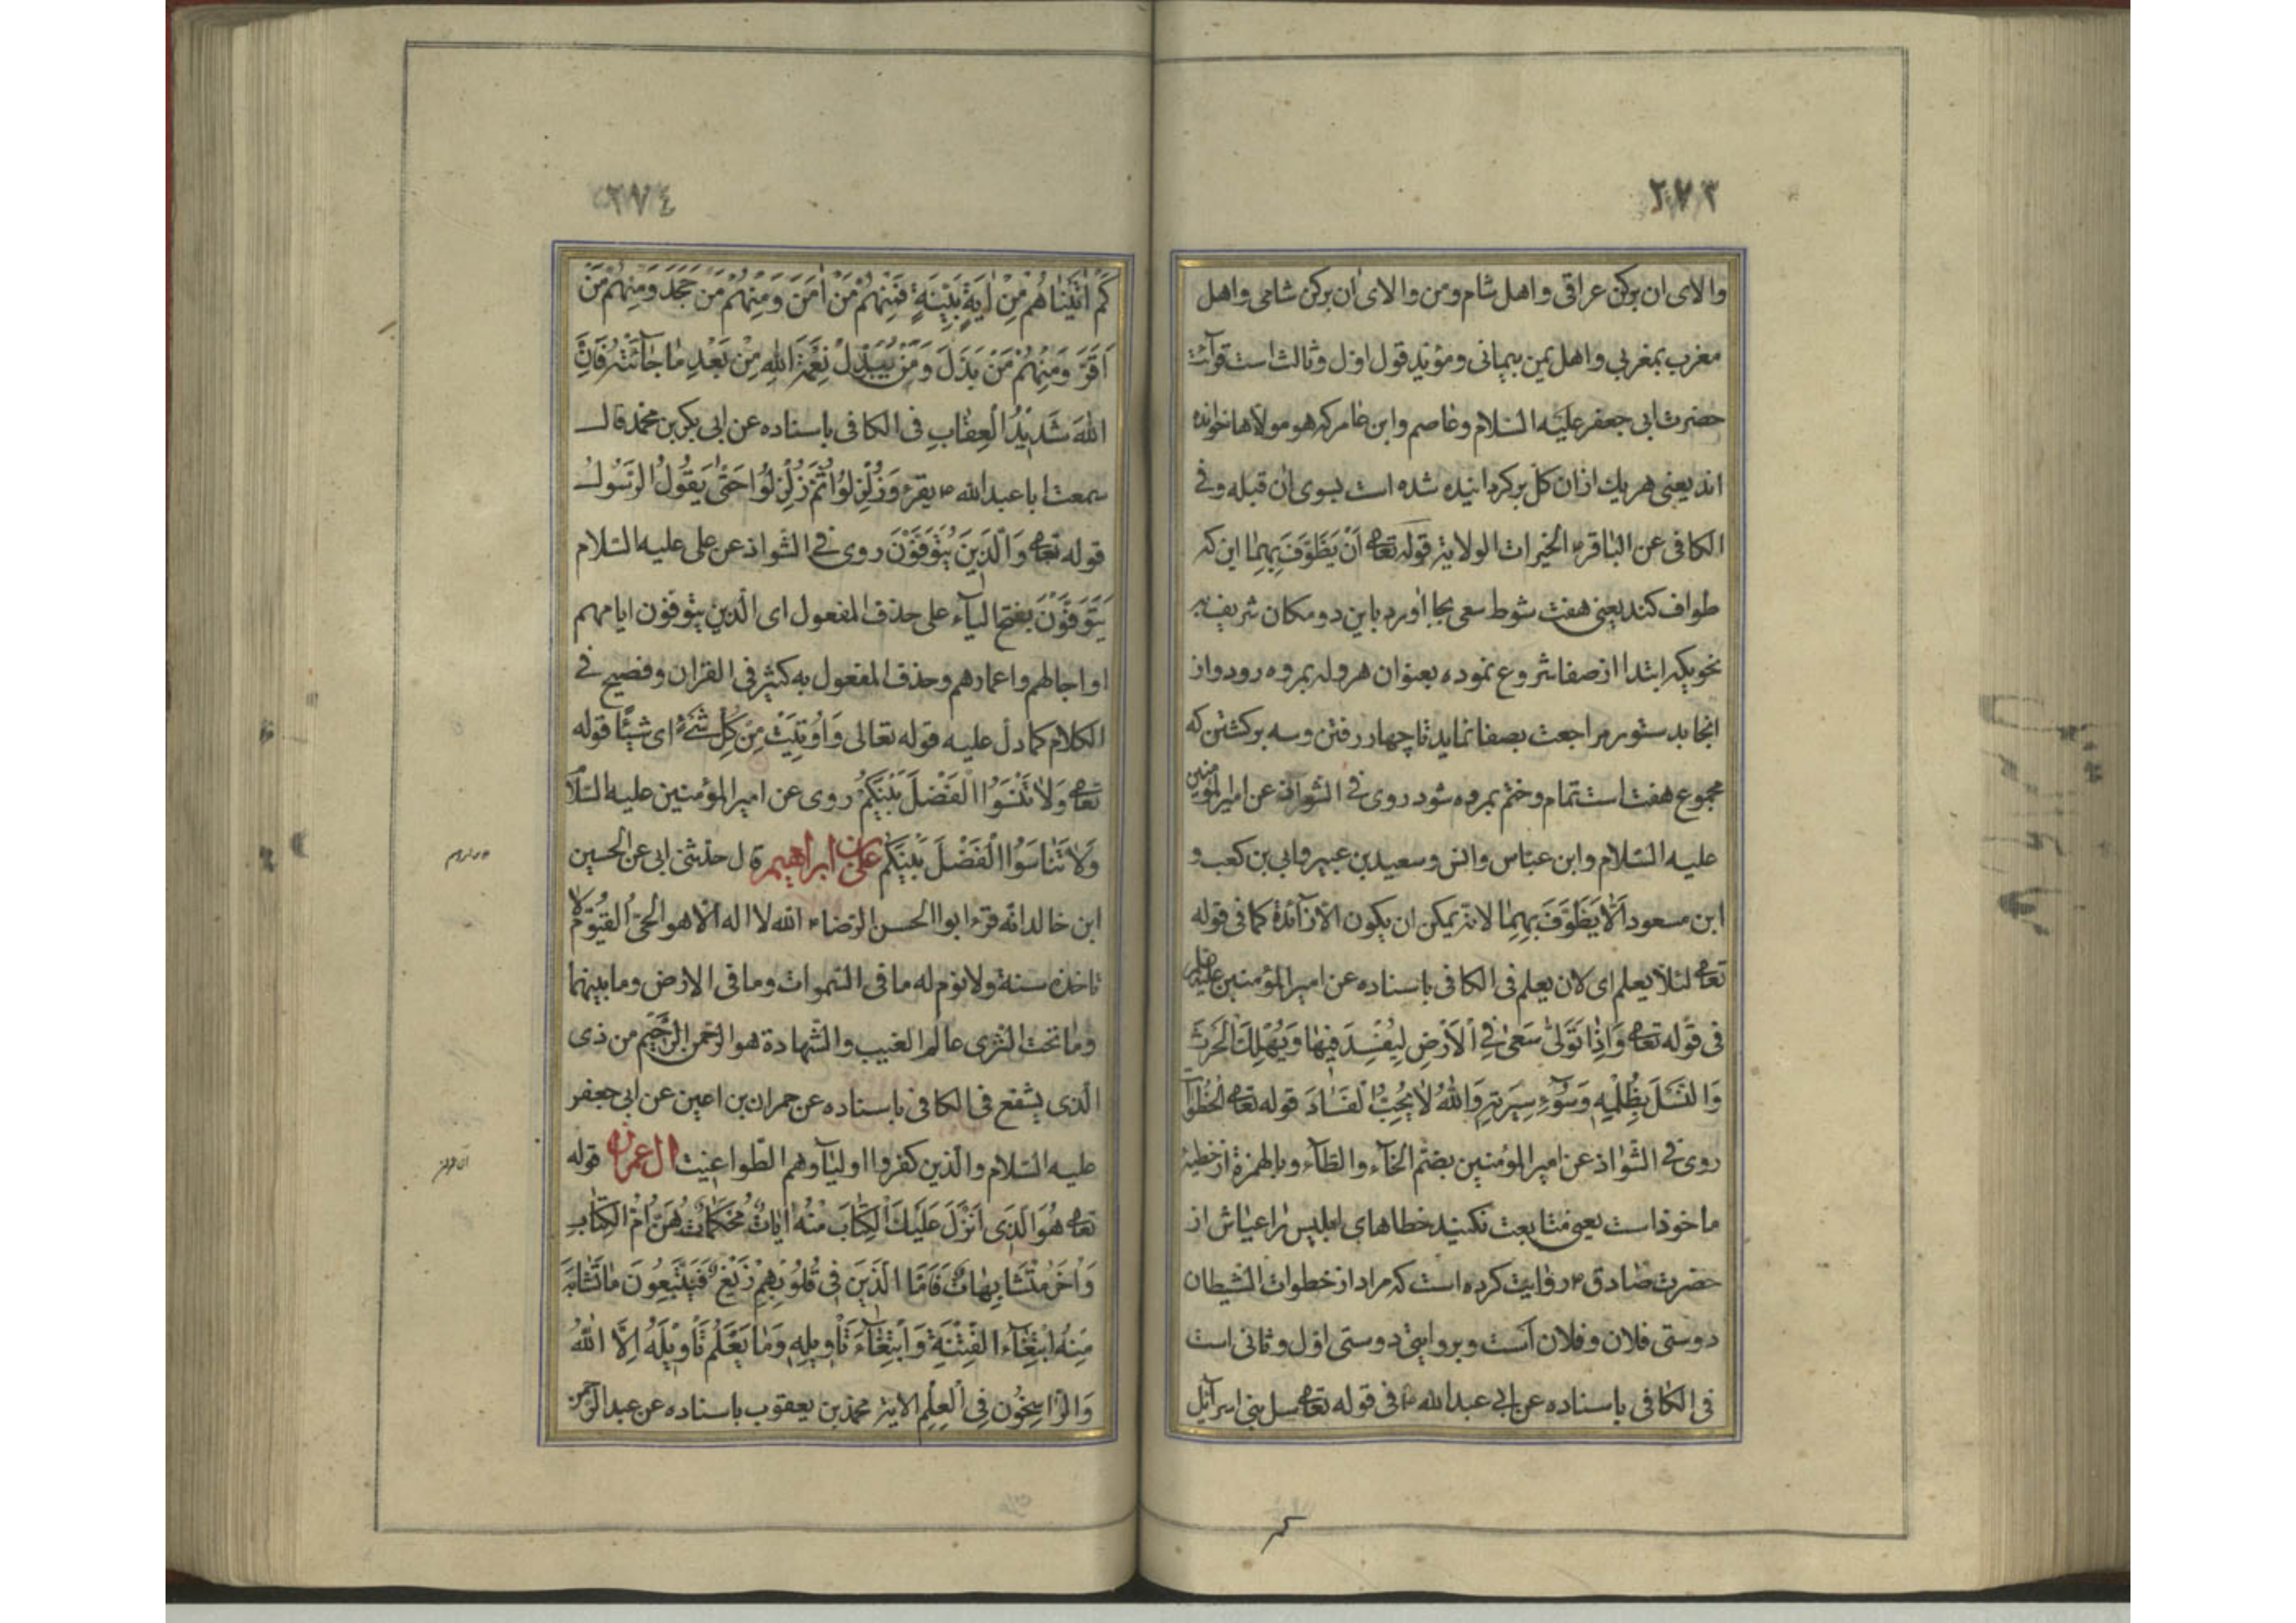 ٢٧٣
والای ان برکن عراقی و اهل شام ومن والای ان برکن شامی واهل
مغرب بمغربی واهل یمن بیمانی ومؤید قول اول وثالث است قرآئت
حضرت ابی جعفر علیه السلام وعاصم وابن عامر که هو مولاها خوانده
اند یعنی هریك ازان کل برکردانیده شده است بسوی ان قبله وفی
الکافی عن الباقر ع الخیرات الولایة قوله تعالی اَنْ یَطَّوَّفَ بِهِمٰا این که
طواف کند یعنی هفت شوط سعی بجا اورد باین دو مکان شریف به
نحویکه ابتدا از صفا شروع نموده بعنوان هروله بمروه رود واز
انجا بدستور مراجعت بصفا نماید تا چهار رفتن وسه برکشتن که
مجموع هفت است تمام وختم بمروه شود روی فی الشواذ عن امیر المؤمنین
علیه السلام وابن عباس وانس وسعید بن جبیر وابی بن کعب و
ابن مسعود اَلّٰا یَطَّوَّفَ بِهِمٰا لانه یمکن ان یکون الا زآئدة کما فی قوله
تعالی لئلا یعلم ای لان یعلم فی الکافی باسناده عن امیر المؤمنین علیه
فی قوله تعالی وَاِذٰا تَوَلّٰی سَعٰی فِی الْاَرْضِ لِیُفْسِدَ فِیهٰا وَیُهْلِكَ الْحَرْثَ
وَالنَّسْلَ بِظُلْمِهِ وَسُوٓءِ سِیرَتِهِ وَاللهُ لٰا یُحِبُّ الْفَسٰادَ قوله تعالی خُطُوٰاتِ
روی فی الشواذ عن امیر المؤمنین بضم الخآء والطآء وبالهمزة از خطیئة
ماخوذ است یعنی متابعت نکنید خطاهای ابلیس را عیاش از
حضرت صادق ع روایت کرده است که مراد از خطوات الشیطان
دوستی فلان وفلان است وبروایتی دوستی اول وثانی است
فی الکافی باسناده عن ابی عبد الله ع فی قوله تعالی سل بنی اسرآئیل
کم
٢٧٤
كَمْ اٰتَیْنٰاهُمْ مِنْ اٰیَةٍ بَیِّنَةٍ فَمِنْهُمْ مَنْ اٰمَنَ وَمِنْهُمْ مَنْ جَحَدَ وَمِنْهُمْ مَنْ
اَقَرَّ وَمِنْهُمْ مَنْ بَدَّلَ وَمَنْ یُبَدِّلْ نِعْمَةَ اللهِ مِنْ بَعْدِ مٰا جٰآئَتْهُ فَاِنَّ
اللهَ شَدِیدُ الْعِقٰابِ فی الکافی باسناده عن ابی بکر بن محمد قال
سمعت ابا عبد الله ع یقرء وَزُلْزِلُوا ثُمَّ زُلْزِلُوا حَتّٰی یَقُولُ الرَّسُولُ
قوله تعالی وَالَّذِینَ یُتَوَفَّوْنَ روی فی الشواذ عن علی علیه السلام
یَتَوَفَّوْنَ بفتح الیآء علی حذف المفعول ای الّذین یتوفون ایامهم
او اجالهم واعمارهم وحذف المفعول به کثیر فی القران وفصیح فی
الکلام کما دل علیه قوله تعالی وَاُوتِیَتْ مِنْ كُلِّ شَیْءٍ ای شیئًا قوله
تعالی وَلٰا تَنْسَوُا الْفَضْلَ بَیْنَکُمْ روی عن امیر المؤمنین علیه السلام
وَلٰا تَنٰاسَوُا الْفَضْلَ بَیْنَکُمْ علی بن ابراهیم قال حدثنی ابی عن الحسین
ابن خالد انه قرء ابو الحسن الرضا ع الله لا اله الّا هو الحی القیوم لا
تاخذه سنة ولا نوم له ما فی السموات وما فی الارض وما بینهما
وما تحت الثری عالم الغیب والشهادة هو الرحمن الرحیم من ذی
الّذی یشفع فی الکافی باسناده عن حمران بن اعین عن ابی جعفر
علیه السلام والّذین کفروا اولیآوهم الطواغیت ال عمران قوله
تعالی هُوَ الَّذِی اَنْزَلَ عَلَیْكَ الْکِتٰابَ مِنْهُ اٰیٰاتٌ مُحْکَمٰاتٌ هُنَّ اُمُّ الْکِتٰابِ
وَاُخَرُ مُتَشٰابِهٰاتٌ فَاَمَّا الَّذِینَ فِی قُلُوبِهِمْ زَیْغٌ فَیَتَّبِعُونَ مٰا تَشٰابَهَ
مِنْهُ ابْتِغٰآءَ الْفِتْنَةِ وَابْتِغٰآءَ تَاْوِیلِهِ وَمٰا یَعْلَمُ تَاْوِیلَهُ اِلَّا اللهُ
وَالرّٰاسِخُونَ فِی الْعِلْمِ الایة محمد بن یعقوب باسناده عن عبد الرحمن